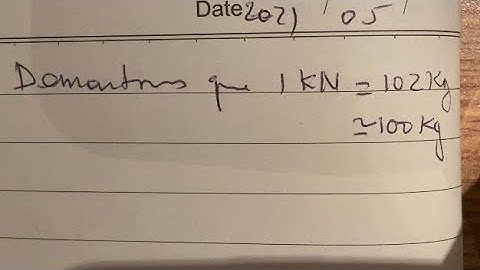 Date 2021 / 05 /
Demontrons que 1 KN = 102 Kg
≃ 100 Kg